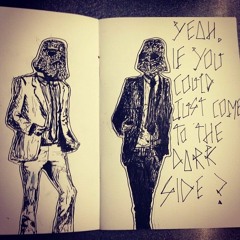 YEAH,
IF YOU
COULD
JUST COME
TO THE
DARK
SIDE?